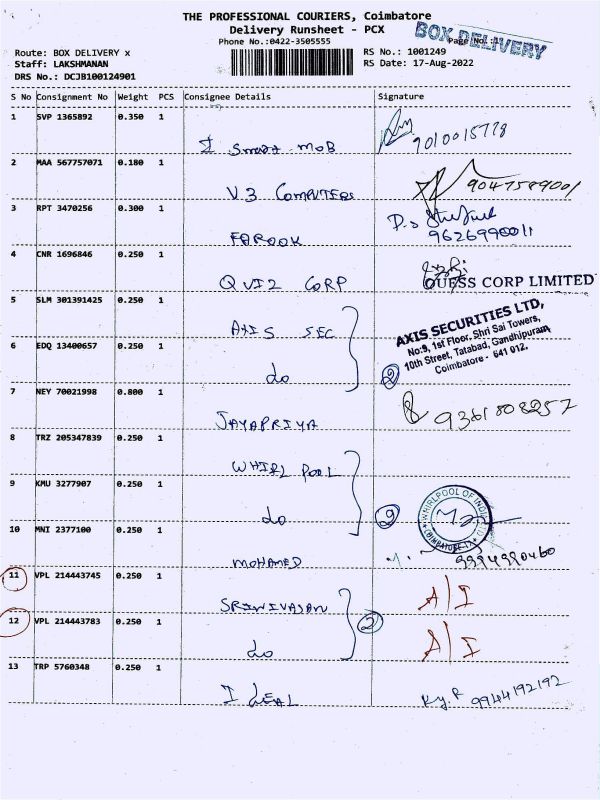 THE PROFESSIONAL COURIERS, Coimbatore
Delivery Runsheet - PCX
Phone No.:0422-3505555
BOX DELIVERY
Route: BOX DELIVERY x
RS No.: 1001249
Staff: LAKSHMANAN
RS Date: 17-Aug-2022
DRS No.: DCJB100124901
S No Consignment No Weight PCS Consignee Details Signature
1 SVP 1365892 0.350 1
I Smart MOB 9010015778
2 MAA 567757071 0.180 1
V3 COMPUTERS 9047589001
3 RPT 3470256 0.300 1
FAROOK 9626990011
4 CNR 1696846 0.250 1
QUIZ CORP QUESS CORP LIMITED
5 SLM 301391425 0.250 1
AXIS SEC
AXIS SECURITIES LTD,
No:9, 1st Floor, Shri Sai Towers,
10th Street, Tatabad, Gandhipuram,
Coimbatore - 641 012.
6 EDQ 13400657 0.250 1
do 2
7 NEY 70021998 0.800 1
JAYAPRIYA 9361808257
8 TRZ 205347839 0.250 1
WHIRL POOL
9 KMU 3277907 0.250 1
do 2
WHIRLPOOL OF INDIA LTD
COIMBATORE
10 MNI 2377100 0.250 1
MOHAMED 9994990460
11 VPL 214443745 0.250 1
SRINIVASAN A/I
12 VPL 214443783 0.250 1
do 2 A/I
13 TRP 5760348 0.250 1
I deal 9944192192